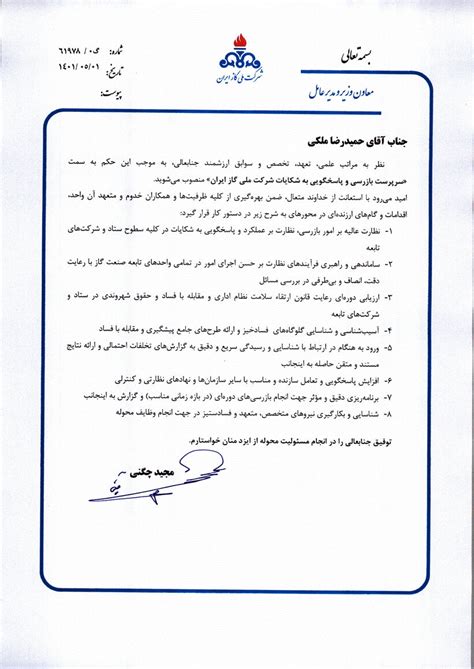 بسمه تعالی
شماره: گ۰/ ۶۱۹۷۸
تاریخ: ۱۴۰۱/۰۵/۰۱
پیوست:
شرکت ملی گاز ایران
معاون وزیر و مدیر عامل
جناب آقای حمیدرضا ملکی
نظر به مراتب علمی، تعهد، تخصص و سوابق ارزشمند جنابعالی، به موجب این حکم به سمت
«سرپرست بازرسی و پاسخگویی به شکایات شرکت ملی گاز ایران» منصوب می‌شوید.
امید می‌رود با استعانت از خداوند متعال، ضمن بهره‌گیری از کلیه ظرفیت‌ها و همکاران خدوم و متعهد آن واحد،
اقدامات و گام‌های ارزنده‌ای در محورهای به شرح زیر در دستور کار قرار گیرد:
۱- نظارت عالیه بر امور بازرسی، نظارت بر عملکرد و پاسخگویی به شکایات در کلیه سطوح ستاد و شرکت‌های
تابعه
۲- ساماندهی و راهبری فرآیندهای نظارت بر حسن اجرای امور در تمامی واحدهای تابعه صنعت گاز با رعایت
دقت، انصاف و بی‌طرفی در بررسی مسائل
۳- ارزیابی دوره‌ای رعایت قانون ارتقاء سلامت نظام اداری و مقابله با فساد و حقوق شهروندی در ستاد و
شرکت‌های تابعه
۴- آسیب‌شناسی و شناسایی گلوگاه‌های فسادخیز و ارائه طرح‌های جامع پیشگیری و مقابله با فساد
۵- ورود به هنگام در ارتباط با شناسایی و رسیدگی سریع و دقیق به گزارش‌های تخلفات احتمالی و ارائه نتایج
مستند و متقن حاصله به اینجانب
۶- افزایش پاسخگویی و تعامل سازنده و مناسب با سایر سازمان‌ها و نهادهای نظارتی و کنترلی
۷- برنامه‌ریزی دقیق و مؤثر جهت انجام بازرسی‌های دوره‌ای (در بازه زمانی مناسب) و گزارش به اینجانب
۸- شناسایی و بکارگیری نیروهای متخصص، متعهد و فسادستیز در جهت انجام وظایف محوله
توفیق جنابعالی را در انجام مسئولیت محوله از ایزد منان خواستارم.
مجید چگنی